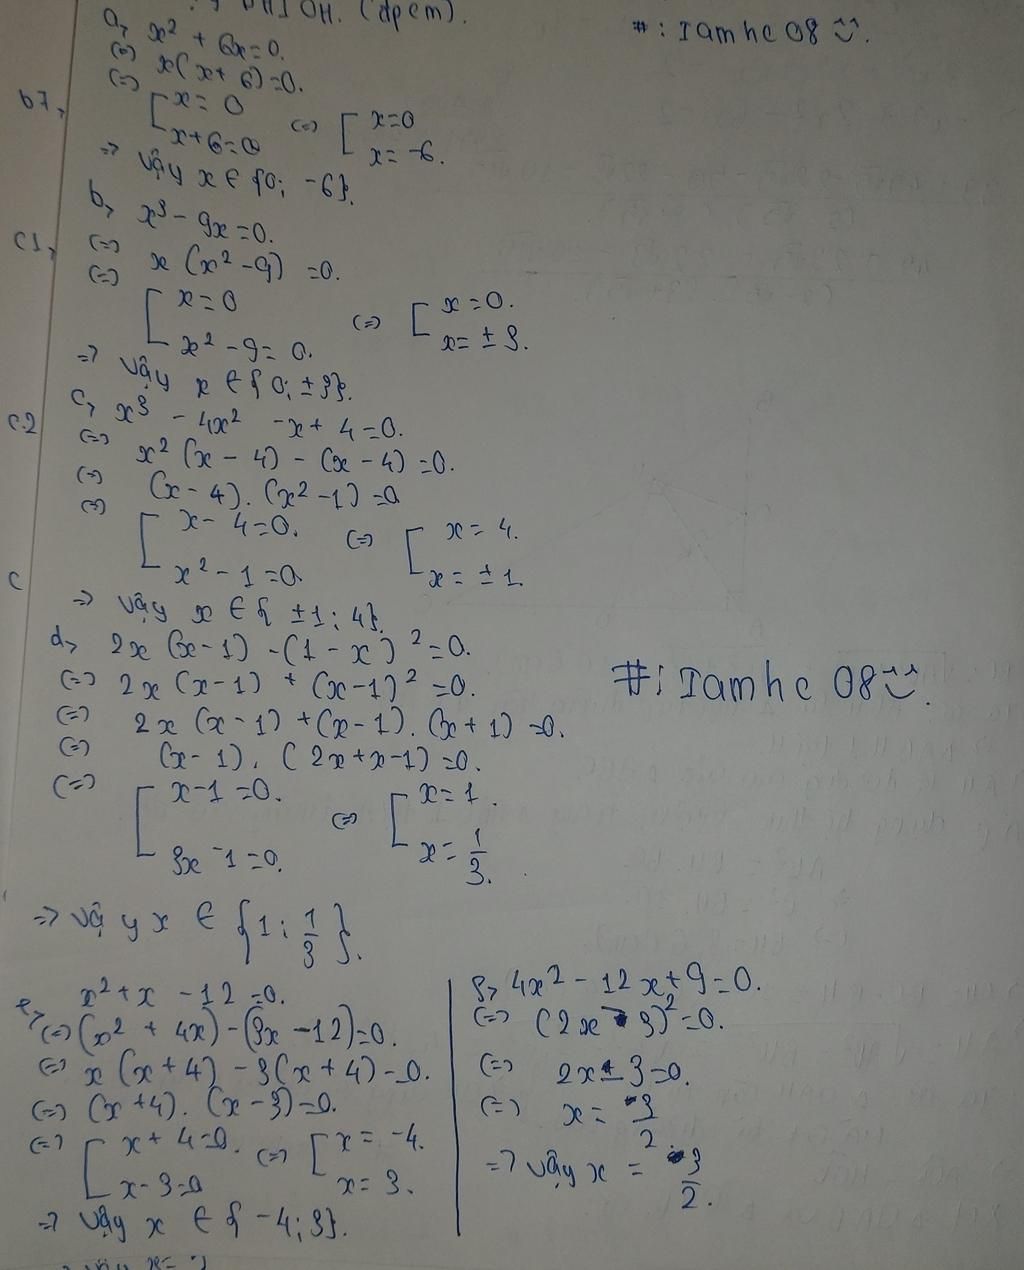 ΔHI OH. (đpcm).
#: Iamhc 08
a, x² + 6x=0.
(=) x(x+6)=0.
b7,
(=) [ x=0
x+6=0 (=) [ x=0
x= -6.
=> Vậy x ∈ {0; -6}.
b, x³ - 9x =0.
c1,
(=) x (x² -9) =0.
(=) [ x=0
x² -9= 0. (=) [ x=0.
x= ± 3.
=> Vậy x ∈ { 0; ±3}.
c, x³ - 4x² -x+ 4=0.
c.2
(=) x² (x - 4) - (x - 4) =0.
(=) (x - 4). (x² -1) =0
(=) [ x- 4=0.
x² - 1 =0 (=) [ x= 4.
x= ± 1.
c
=> Vậy x ∈ { ±1; 4}.
d, 2x (x-1) -(1 - x)² =0.
(=) 2x (x-1) + (x-1)² =0.
#: Iamhc 08
(=) 2x (x-1) +(x-1). (x+1) =0.
(=) (x-1). ( 2x+x-1) =0.
(=) [ x-1 =0.
3x -1 =0. (=) [ x= 1.
x= 1/3.
=> Vậy x ∈ {1; 1/3}.
e, x² + x - 12 =0.
(=) (x² + 4x) -(3x -12)=0.
(=) x (x+4) - 3(x+4) =0.
(=) (x+4). (x-3)=0.
(=) [ x+ 4=0.
x-3=0 (=) [ x= -4.
x= 3.
=> Vậy x ∈ { -4; 3}.
f, 4x² - 12x+9=0.
(=) (2x - 3)² =0.
(=) 2x - 3=0.
(=) x= 3/2.
=> Vậy x = 3/2.